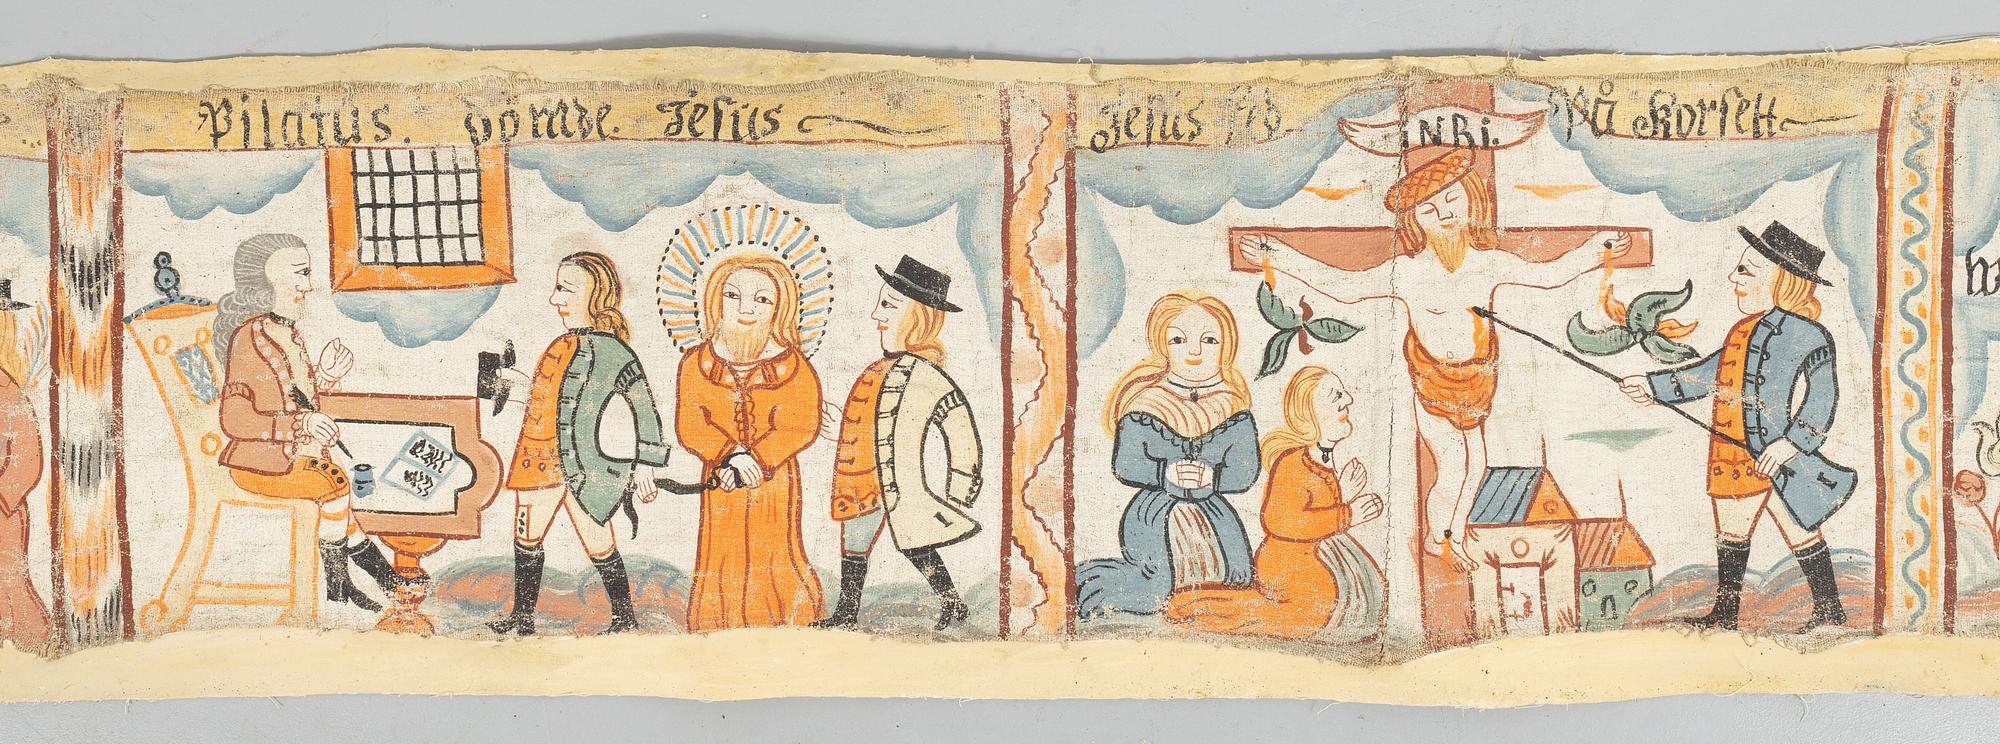 Pilatus. dömde. Jesus
Jesus På Korsett
INRi.